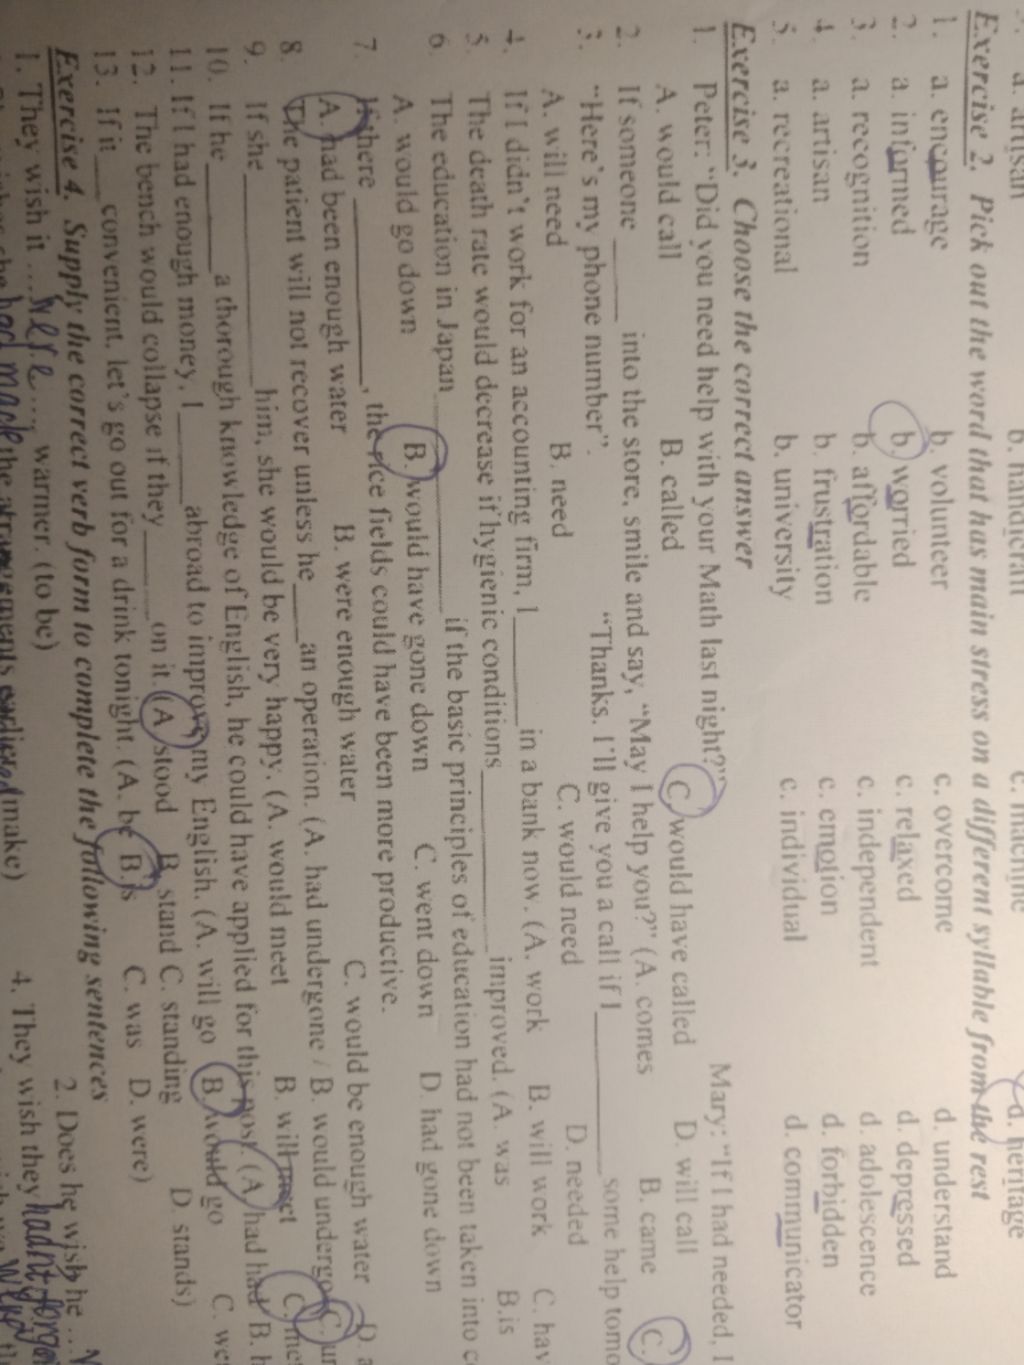 a. artisan b. handicraft c. machine d. heritage
Exercise 2. Pick out the word that has main stress on a different syllable from the rest
1. a. encourage b. volunteer c. overcome d. understand
2. a. informed b. worried c. relaxed d. depressed
3. a. recognition b. affordable c. independent d. adolescence
4. a. artisan b. frustration c. emotion d. forbidden
5. a. recreational b. university c. individual d. communicator
Exercise 3. Choose the correct answer
1. Peter: "Did you need help with your Math last night?" Mary: "If I had needed, I
A. would call B. called C. would have called D. will call
2. If someone ______ into the store, smile and say, "May I help you?" (A. comes B. came C.
3. "Here's my phone number". "Thanks. I'll give you a call if I ______ some help tomo
A. will need B. need C. would need D. needed
4. If I didn't work for an accounting firm, I ______ in a bank now. (A. work B. will work C. hav
5. The death rate would decrease if hygienic conditions ______ improved. (A. was B. is
6. The education in Japan ______ if the basic principles of education had not been taken into c
A. would go down B. would have gone down C. went down D. had gone down
7. If there ______, the rice fields could have been more productive.
A. had been enough water B. were enough water C. would be enough water D.
8. The patient will not recover unless he ____ an operation. (A. had undergone / B. would undergo C. un
9. If she ______ him, she would be very happy. (A. would meet B. will meet C. met
10. If he ______ a thorough knowledge of English, he could have applied for this post. (A. had had B. h
11. If I had enough money, I ______ abroad to improve my English. (A. will go B. would go C. we
12. The bench would collapse if they ______ on it. (A. stood B. stand C. standing D. stands)
13. If it ___ convenient, let's go out for a drink tonight. (A. be B. is C. was D. were)
Exercise 4. Supply the correct verb form to complete the following sentences
1. They wish it ... were ... warmer. (to be) 2. Does he wish he ...
had made the arrangements earlier (make) 4. They wish they hadn't